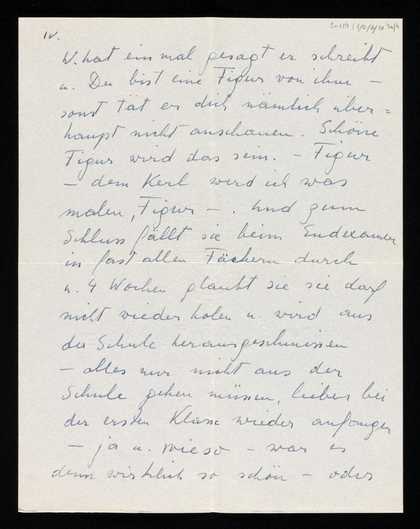 IV.
W. hat einmal gesagt er schreibt
u. Du bist eine Figur von ihm –
sonst tät er dich nämlich über=
haupt nicht anschauen. Schöne
Figur wird das sein. – Figur
– dem Kerl werd ich was
malen, Figur –. Und zum
Schluss fällt sie beim Endexamen
in fast allen Fächern durch
u. 4 Wochen glaubt sie sie darf
nicht wiederholen u. wird aus
der Schule herausgeschmissen
– alles nur nicht aus der
Schule gehen müssen, lieber bei
der ersten Klasse wieder anfangen
– ja u. wieso – war es
denn wirklich so schön – oder